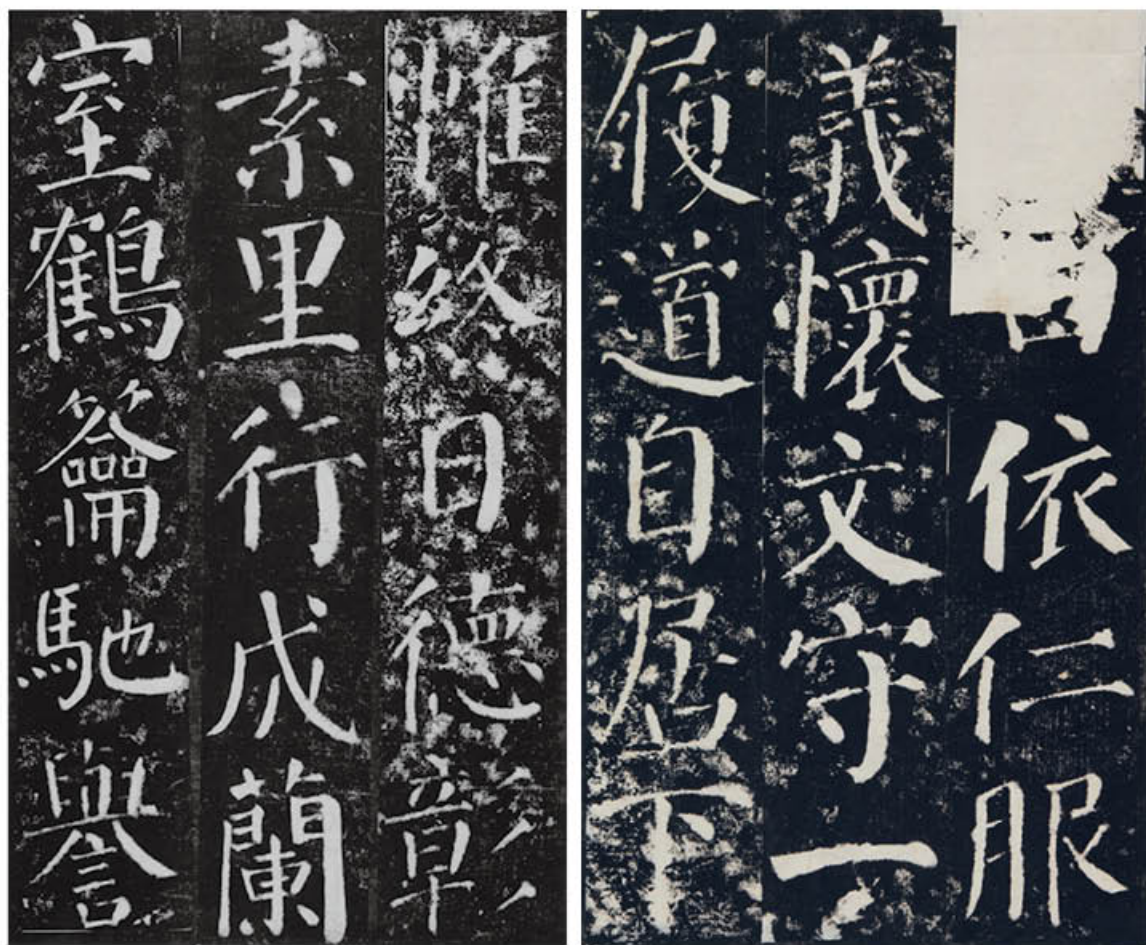 依仁服
義懷文守一
履道自居下
帷終日德彰
素里行成蘭
室鶴籥馳譽